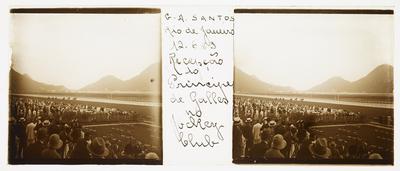 G. A. SANTOS
Rio de Janeiro
Recepção
do
Principe
de Galles
no
Jockey
Club